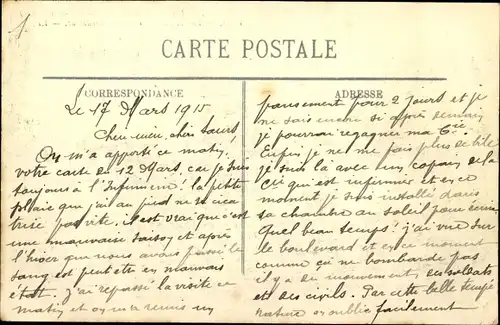 CARTE POSTALE
CORRESPONDANCE
Le 17 Mars 1915
Cher
On m'a apporté ce matin,
votre carte du 12 Mars, car je suis
toujours à l'Infirmerie. la petite
plaie que j'ai au pied ne se cica
trise pas vite. il est vrai que c'est
une mauvaise saison, et après
l'hiver que nous avons passé le
sang est peut être en mauvais
état. J'ai repassé la visite ce
matin et on m'a remis un
ADRESSE
pansement pour 2 jours et je
ne sais encore si après demain
je pourrai regagner ma Cie
Enfin je ne me fais plus de bile
je suis là avec un copain de la
Cie qui est infirmier et en ce
moment je suis installé dans
sa chambre au soleil pour écrire
Quel beau temps! j'ai vue sur
le boulevard et en ce moment
comme ça ne bombarde pas
il y a du mouvement, des soldats
et des civils. Par cette belle tempé
rature on oublie facilement